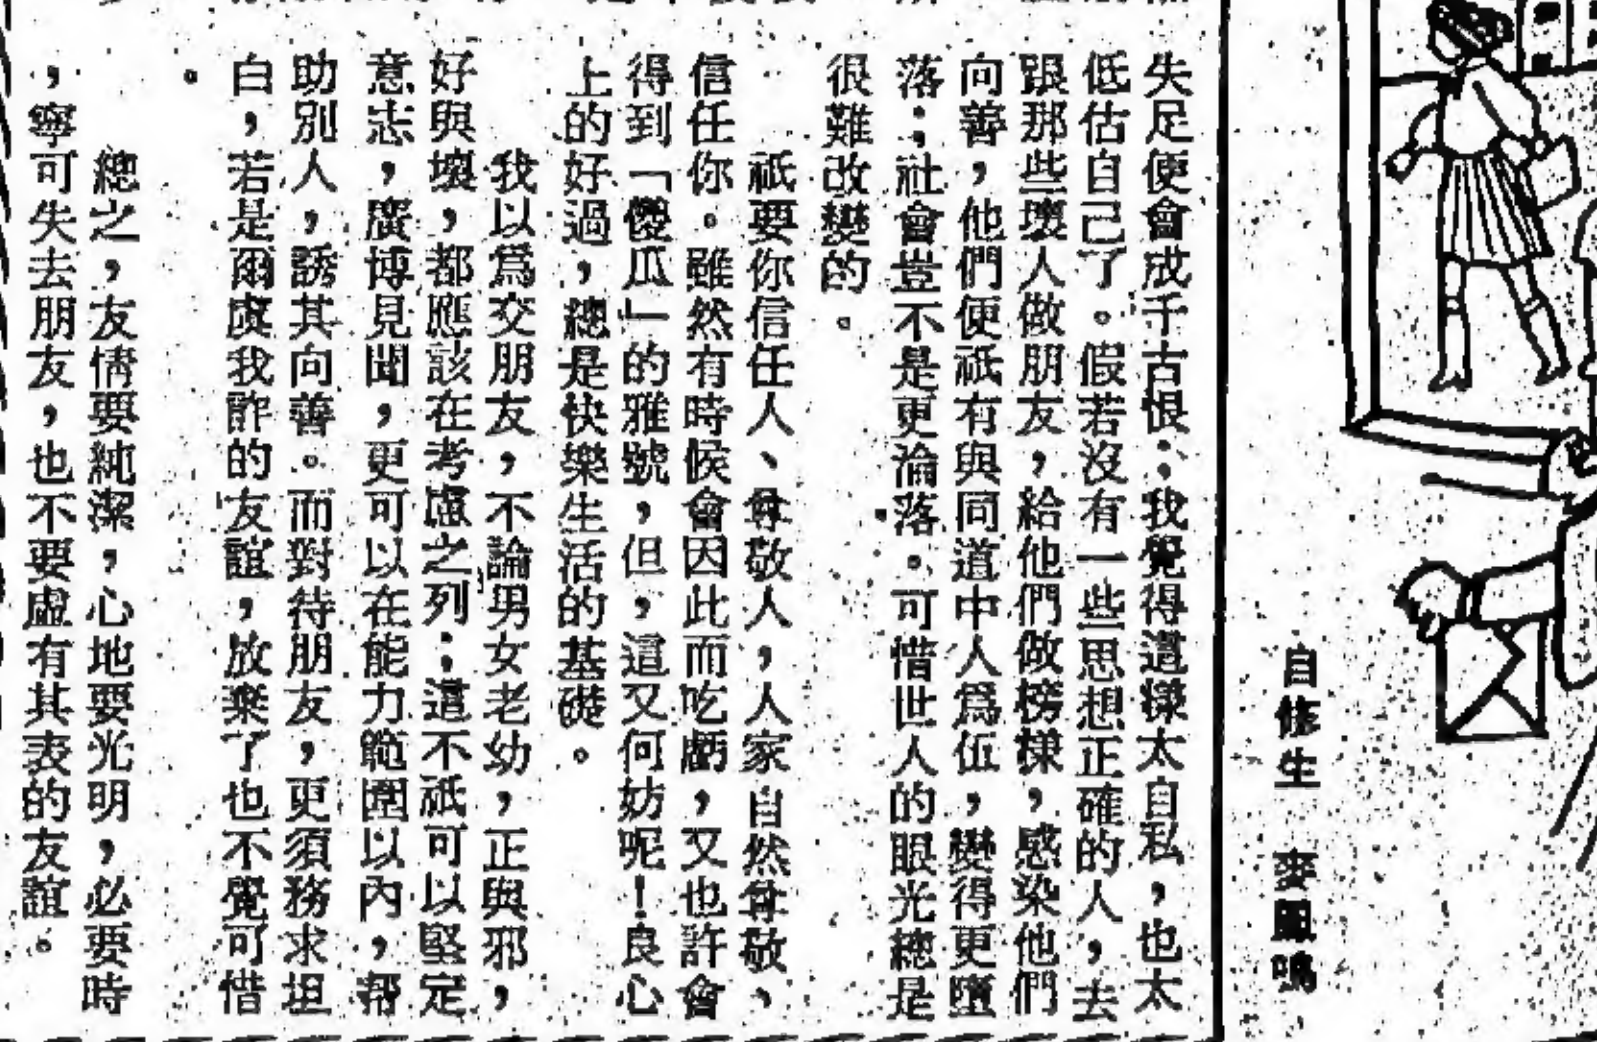 自修生 麥鳳鳴
失足便會成千古恨;我覺得這樣太自私,也太
低估自己了。假若沒有一些思想正確的人,去
跟那些壞人做朋友,給他們做榜樣,感染他們
向善,他們便祇有與同道中人爲伍,變得更墮
落;社會豈不是更淪落。可惜世人的眼光總是
很難改變的。
祇要你信任人、尊敬人,人家自然尊敬、
信任你。雖然有時候會因此而吃虧,又也許會
得到「儍瓜」的雅號,但,這又何妨呢!良心
上的好過,總是快樂生活的基礎。
我以爲交朋友,不論男女老幼,正與邪,
好與壞,都應該在考慮之列;這不祇可以堅定
意志,廣博見聞,更可以在能力範圍以內,帮
助別人,誘其向善。而對待朋友,更須務求坦
白,若是爾虞我詐的友誼,放棄了也不覺可惜
。
總之,友情要純潔,心地要光明,必要時
,寧可失去朋友,也不要虛有其表的友誼。